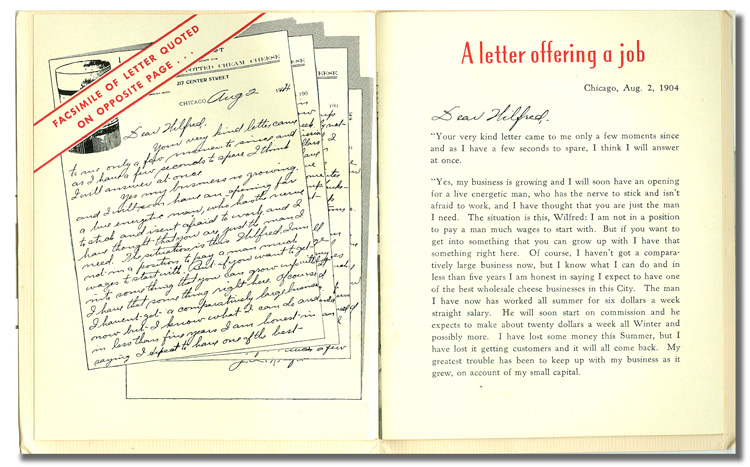 FACSIMILE OF LETTER QUOTED
ON OPPOSITE PAGE . . .
POTTED CREAM CHEESE
217 CENTER STREET
CHICAGO Aug 2
Dear Wilfred:
Your very kind letter came
to me only a few moments since and
as I have a few seconds to spare I think
I will answer at once
Yes my business is growing
and I will soon have an opening for
a live energetic man, who has the nerve
to stick and isn't afraid to work, and I
have thought that you are just the man I
need. The situation is this Wilfred, I am
not in a position to pay a man much
wages to start with. But if you want to get
into something that you can grow up with
I have that something right here. Of course
I haven't got a comparatively large business
now but I know what I can do and
in less than five years I am honest in
saying I expect to have one of the best
A letter offering a job
Chicago, Aug. 2, 1904
Dear Wilfred.
"Your very kind letter came to me only a few moments since
and as I have a few seconds to spare, I think I will answer
at once.
"Yes, my business is growing and I will soon have an opening
for a live energetic man, who has the nerve to stick and isn't
afraid to work, and I have thought that you are just the man
I need. The situation is this, Wilfred: I am not in a position
to pay a man much wages to start with. But if you want to
get into something that you can grow up with I have that
something right here. Of course, I haven't got a compara-
tively large business now, but I know what I can do and in
less than five years I am honest in saying I expect to have one
of the best wholesale cheese businesses in this City. The man
I have now has worked all summer for six dollars a week
straight salary. He will soon start on commission and he
expects to make about twenty dollars a week all Winter and
possibly more. I have lost some money this Summer, but I
have lost it getting customers and it will all come back. My
greatest trouble has been to keep up with my business as it
grew, on account of my small capital.